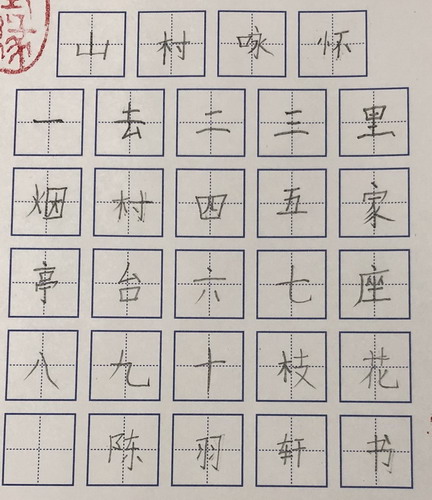 山村咏怀
一去二三里
烟村四五家
亭台六七座
八九十枝花
陈羽轩书